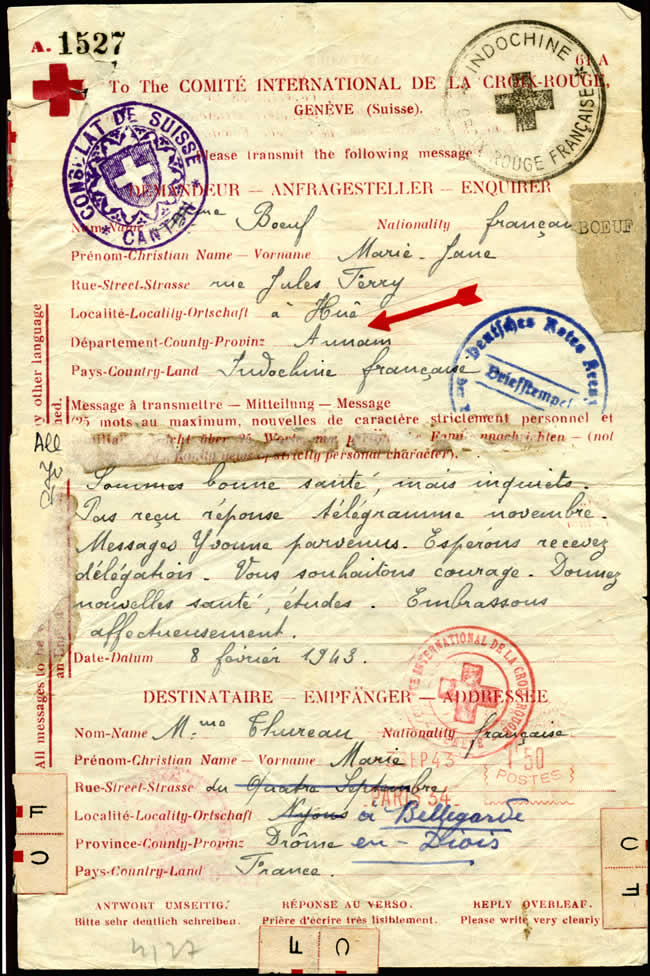 A. 1527
61 A
To The COMITÉ INTERNATIONAL DE LA CROIX-ROUGE,
GENÈVE (Suisse).
INDOCHINE
ROUGE FRANÇAISE
CONSULAT DE SUISSE
CANTON
Please transmit the following message
DEMANDEUR — ANFRAGESTELLER — ENQUIRER
Nom-Name Mme Bœuf Nationality françai
BOEUF
Prénom-Christian Name – Vorname Marie-Jane
Rue-Street-Strasse rue Jules Ferry
Localité-Locality-Ortschaft à Huê
Département-County-Provinz Annam
Pays-Country-Land Indochine française
Deutsches Rotes Kreuz
Briefstempel
Message à transmettre — Mitteilung — Message
25 mots au maximum, nouvelles de caractère strictement personnel et
nicht über 25 Worte, nur Familiennachrichten – (not
news of strictly personal character).
Sommes bonne santé, mais inquiets.
Pas reçu réponse télégramme novembre.
Messages Yvonne parvenus. Espérons recevez
délégation. Vous souhaitons courage. Donnez
nouvelles santé, études. Embrassons
affectueusement.
Date-Datum 8 février 1943.
All messages to be
any other language
INTERNATIONAL DE LA CROIX-ROUGE
DESTINATAIRE — EMPFÄNGER — ADDRESSÉE
Nom-Name Mme Thureau Nationality française
Prénom-Christian Name – Vorname Marie
SEP 43
1 50
POSTES
Rue-Street-Strasse du Quatre Septembre
PARIS 34
Localité-Locality-Ortschaft Nyons à Bellegarde
Province-County-Provinz Drôme en-Diois
Pays-Country-Land France.
F C
C F
F C
ANTWORT UMSEITIG. RÉPONSE AU VERSO. REPLY OVERLEAF.
Bitte sehr deutlich schreiben. Prière d'écrire très lisiblement. Please write very clearly